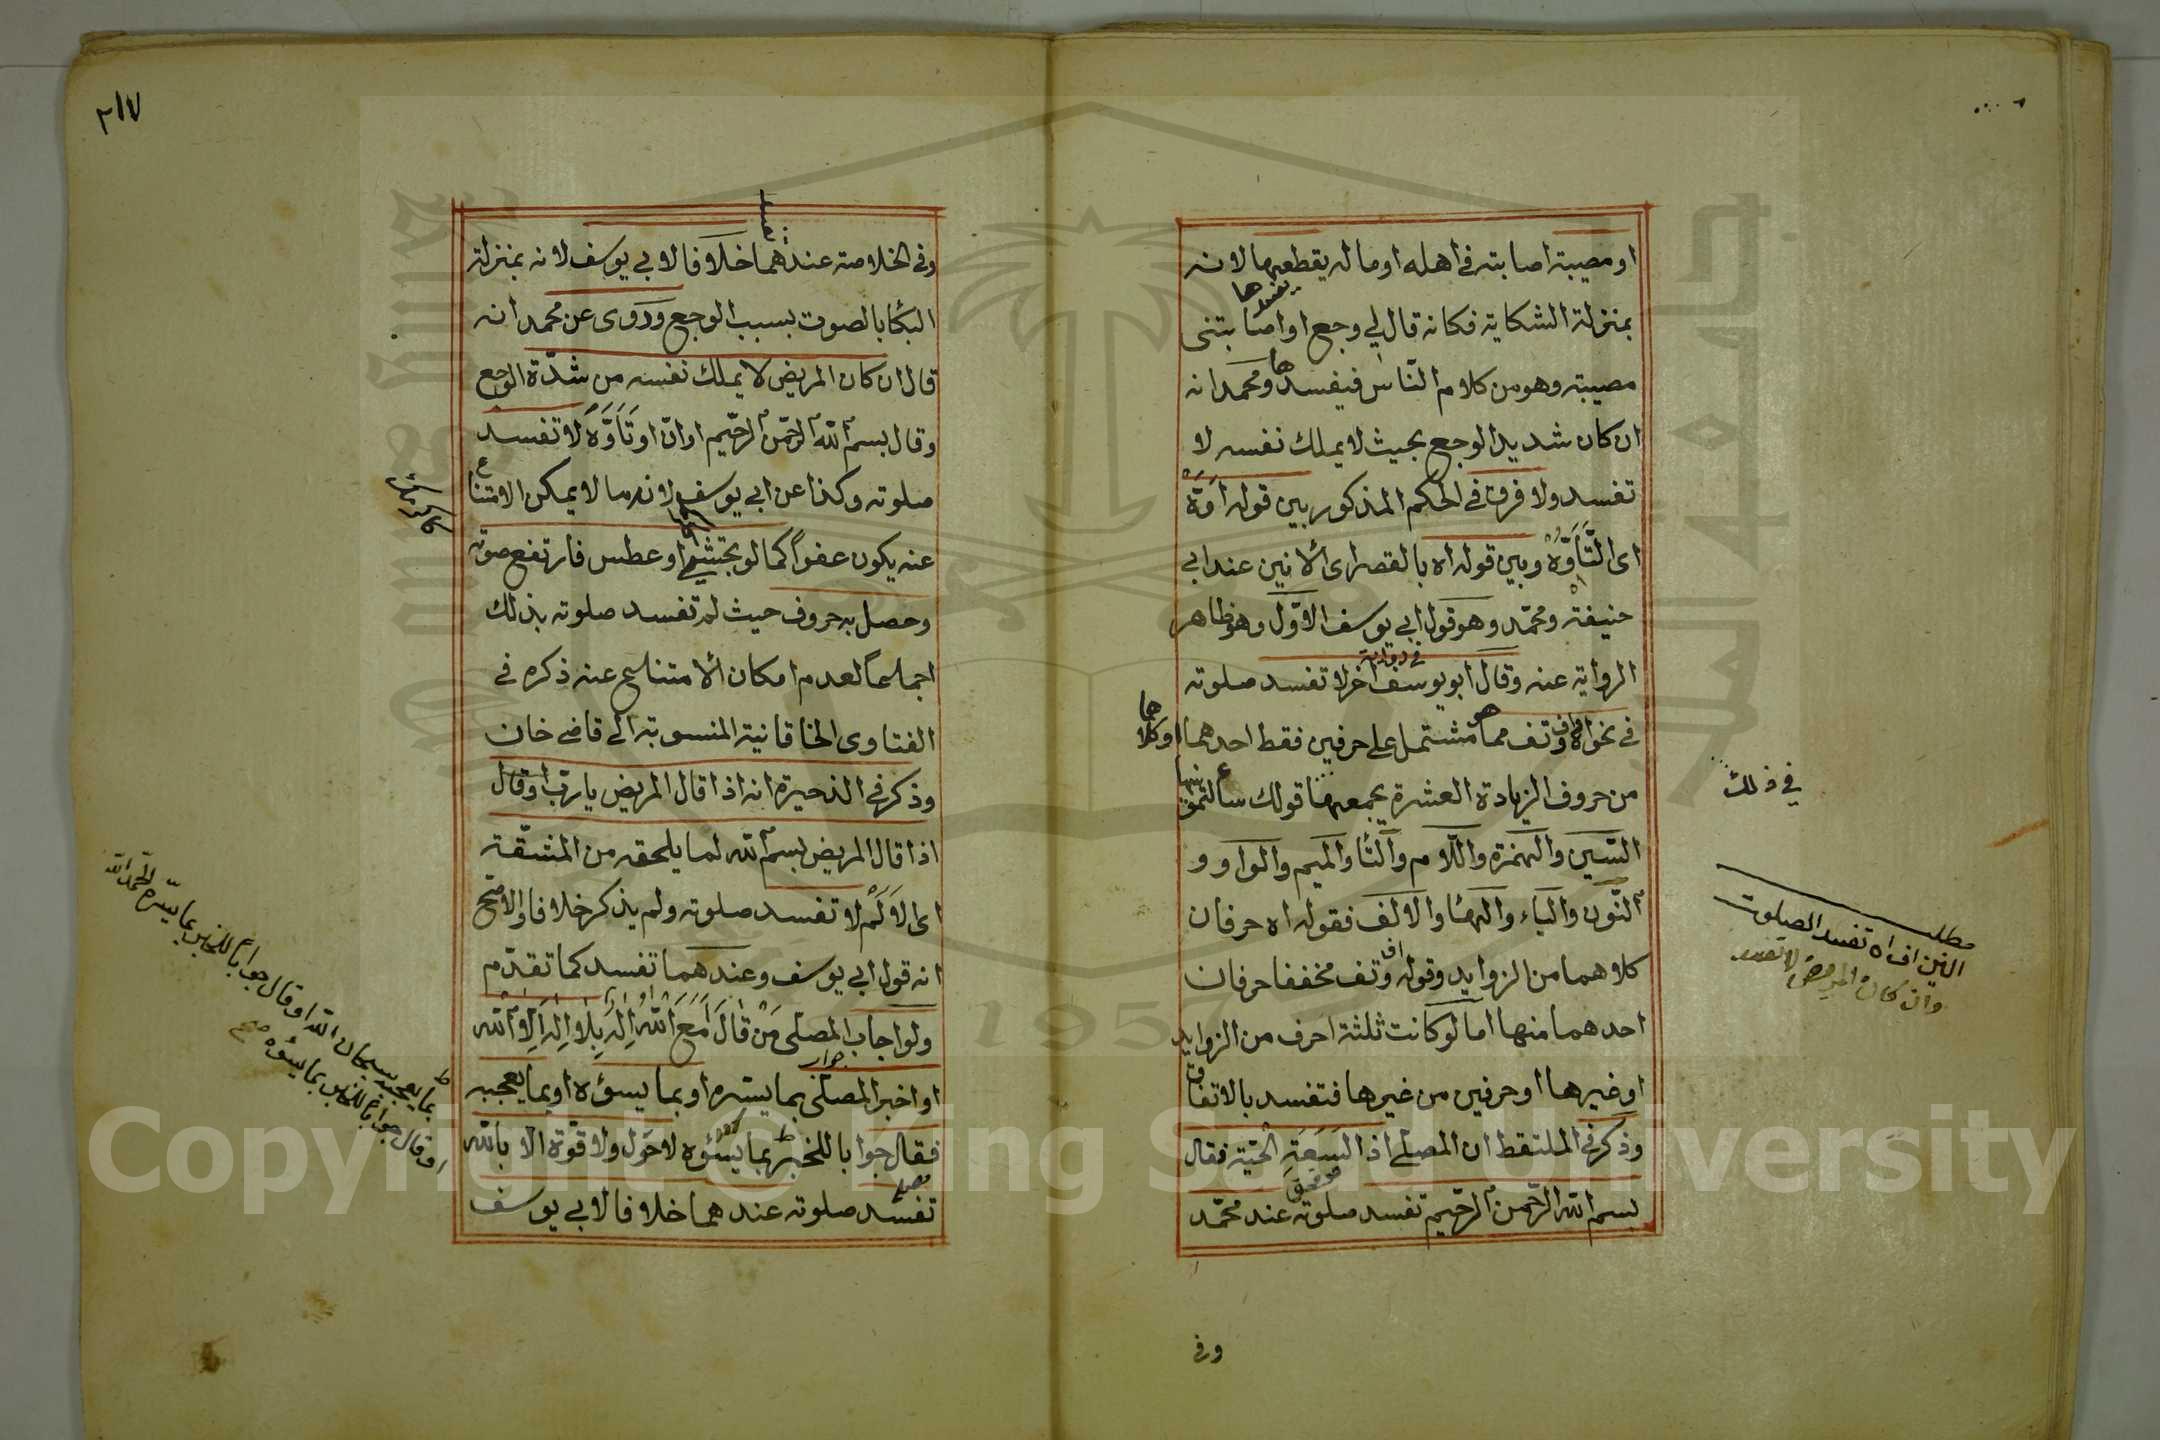 او مصيبة اصابته في اهله او ماله يقطعها لانه
يفسدها
بمنزلة الشكاية فكانه قال لي وجع او اصابتني
مصيبة وهو من كلام النّاس فيفسدها و محمد انه
ان كان شديد الوجع بحيث لا يملك نفسه لا
تفسد ولا فرق في الحكم المذكور بين قوله اَوَّهْ
اى التَّأَوُّهُ وبين قوله اه بالقصر اى الانين عند ابي
حنيفة ومحمّد وهو قول ابي يوسف الاوّل وهو ظاهر
الرواية عنه وقال ابو يوسف اخرا لا تفسد صلوته
في رواية
في نحو اه واف وتف مما هو مشتمل على حرفين فقط احدهما او كلا
هما
من حروف الزيادة العشرة يجمعها قولك سالتمونيها
السّين والهمزة واللّام والتّا والميم والواو و
النّون والياء والها والالف فقوله اه حرفان
كلاهما من الزوايد وقوله اف وتف مخففا حرفان
احدهما منها اما لو كانت ثلثة احرف من الزوايد
او غيرها او حرفين من غيرها فتفسد بالاتفاق
وذكر في الملتقط ان المصلي اذا لسعته الحيّة فقال
بسم الله الرّحمن الرّحيم تفسد صلوته عند محمّد
في ذلك
مطلب
الانين اف اه تفسد الصلوة
وان كان المريض لا تفسد
وفي
٢١٧
وفي الخلاصة عندهما خلافا لابي يوسف لانه بمنزلة
البكا بالصوت بسبب الوجع وروى عن محمد انه
قال ان كان المريض لا يملك نفسه من شدّة الوجع
وقال بسم الله الرحمن الرحيم او انّ او تَأَوَّهَ لا تفسد
صلوته وكذا عن ابي يوسف لانه مما لا يمكن الامتناع
عنه يكون عفواً كما لو تجشّى او عطس فارتفع صوته
وحصل به حروف حيث لم تفسد صلوته بذلك
اجماعًا لعدم امكان الامتناع عنه ذكره في
الفتاوى الخاقانية المنسوبة الى قاضي خان
وذكر في الذخيرة انه اذا قال المريض يا ربّ او قال
اذا قال المريض بسم الله لما يلحقه من المشقّة
اى الاَلَم لا تفسد صلوته ولم يذكر خلافا والاصّح
انه قول ابي يوسف وعندهما تفسد كما تقدّم
ولو اجاب المصلى مَنْ قَالَ اَمَعَ اللّٰه اِلٰه بِلا اِلٰه اِلَّا اللّٰه
او اخبر المصلّى بما يسّره او بما يسؤه او بما يعجبه
فقال جوابا للمخبر بما يسؤه لا حول ولا قوّة الّا بالله
تفسد صلوته عندهما خلافا لابي يوسف
بما يعجبه سبحان الله او قال جوابا للمخابر بما يسّره الحمد لله
او قال جوابا للمخابر بما يسؤه صح
Copyright © King Saud University
1957